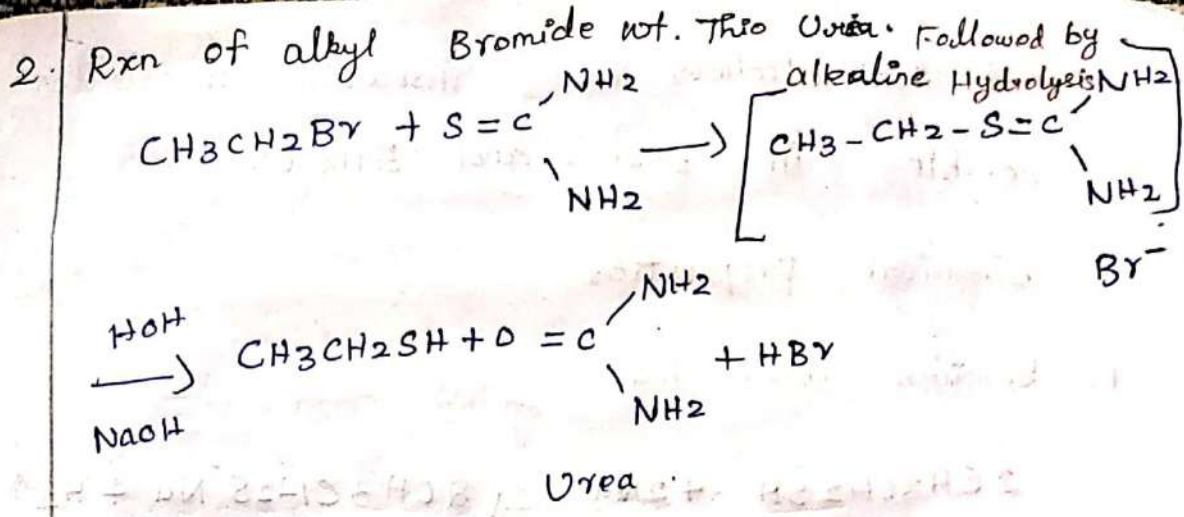 2. Rxn of alkyl Bromide wt. Thio Urea. Followed by
alkaline Hydrolysis
NH2 NH2
CH3CH2Br + S = C → [ CH3 - CH2 - S = C ]
NH2 NH2
Br-
NH2
HOH
→ CH3CH2SH + O = C + HBr
NaOH
NH2
Urea .